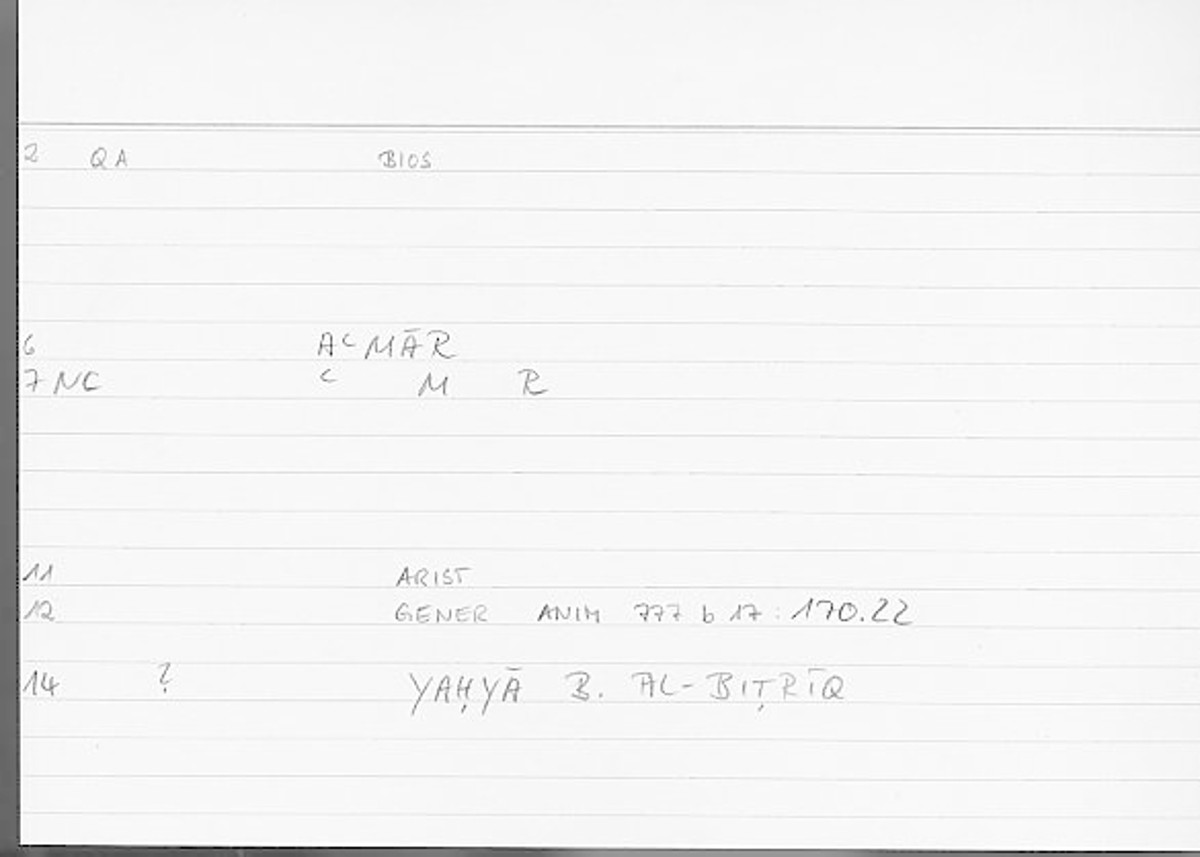 2 QA BIOS
6 AʿMĀR
7 NC ʿ M R
11 ARIST
12 GENER ANIM 777 b 17 : 170.22
14 ? YAḤYĀ B. AL-BIṬRĪQ